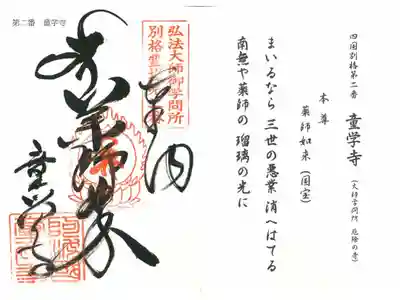 四国別格第二番 童学寺 (大師学問所 厄除の寺)
本尊
薬師如来 (国宝)
まいるなら 三世の悪業 消へはてる
南無や薬師の 瑠璃の光に
第二番 童学寺
弘法大師御学問所
奉納
薬師如来
童学寺